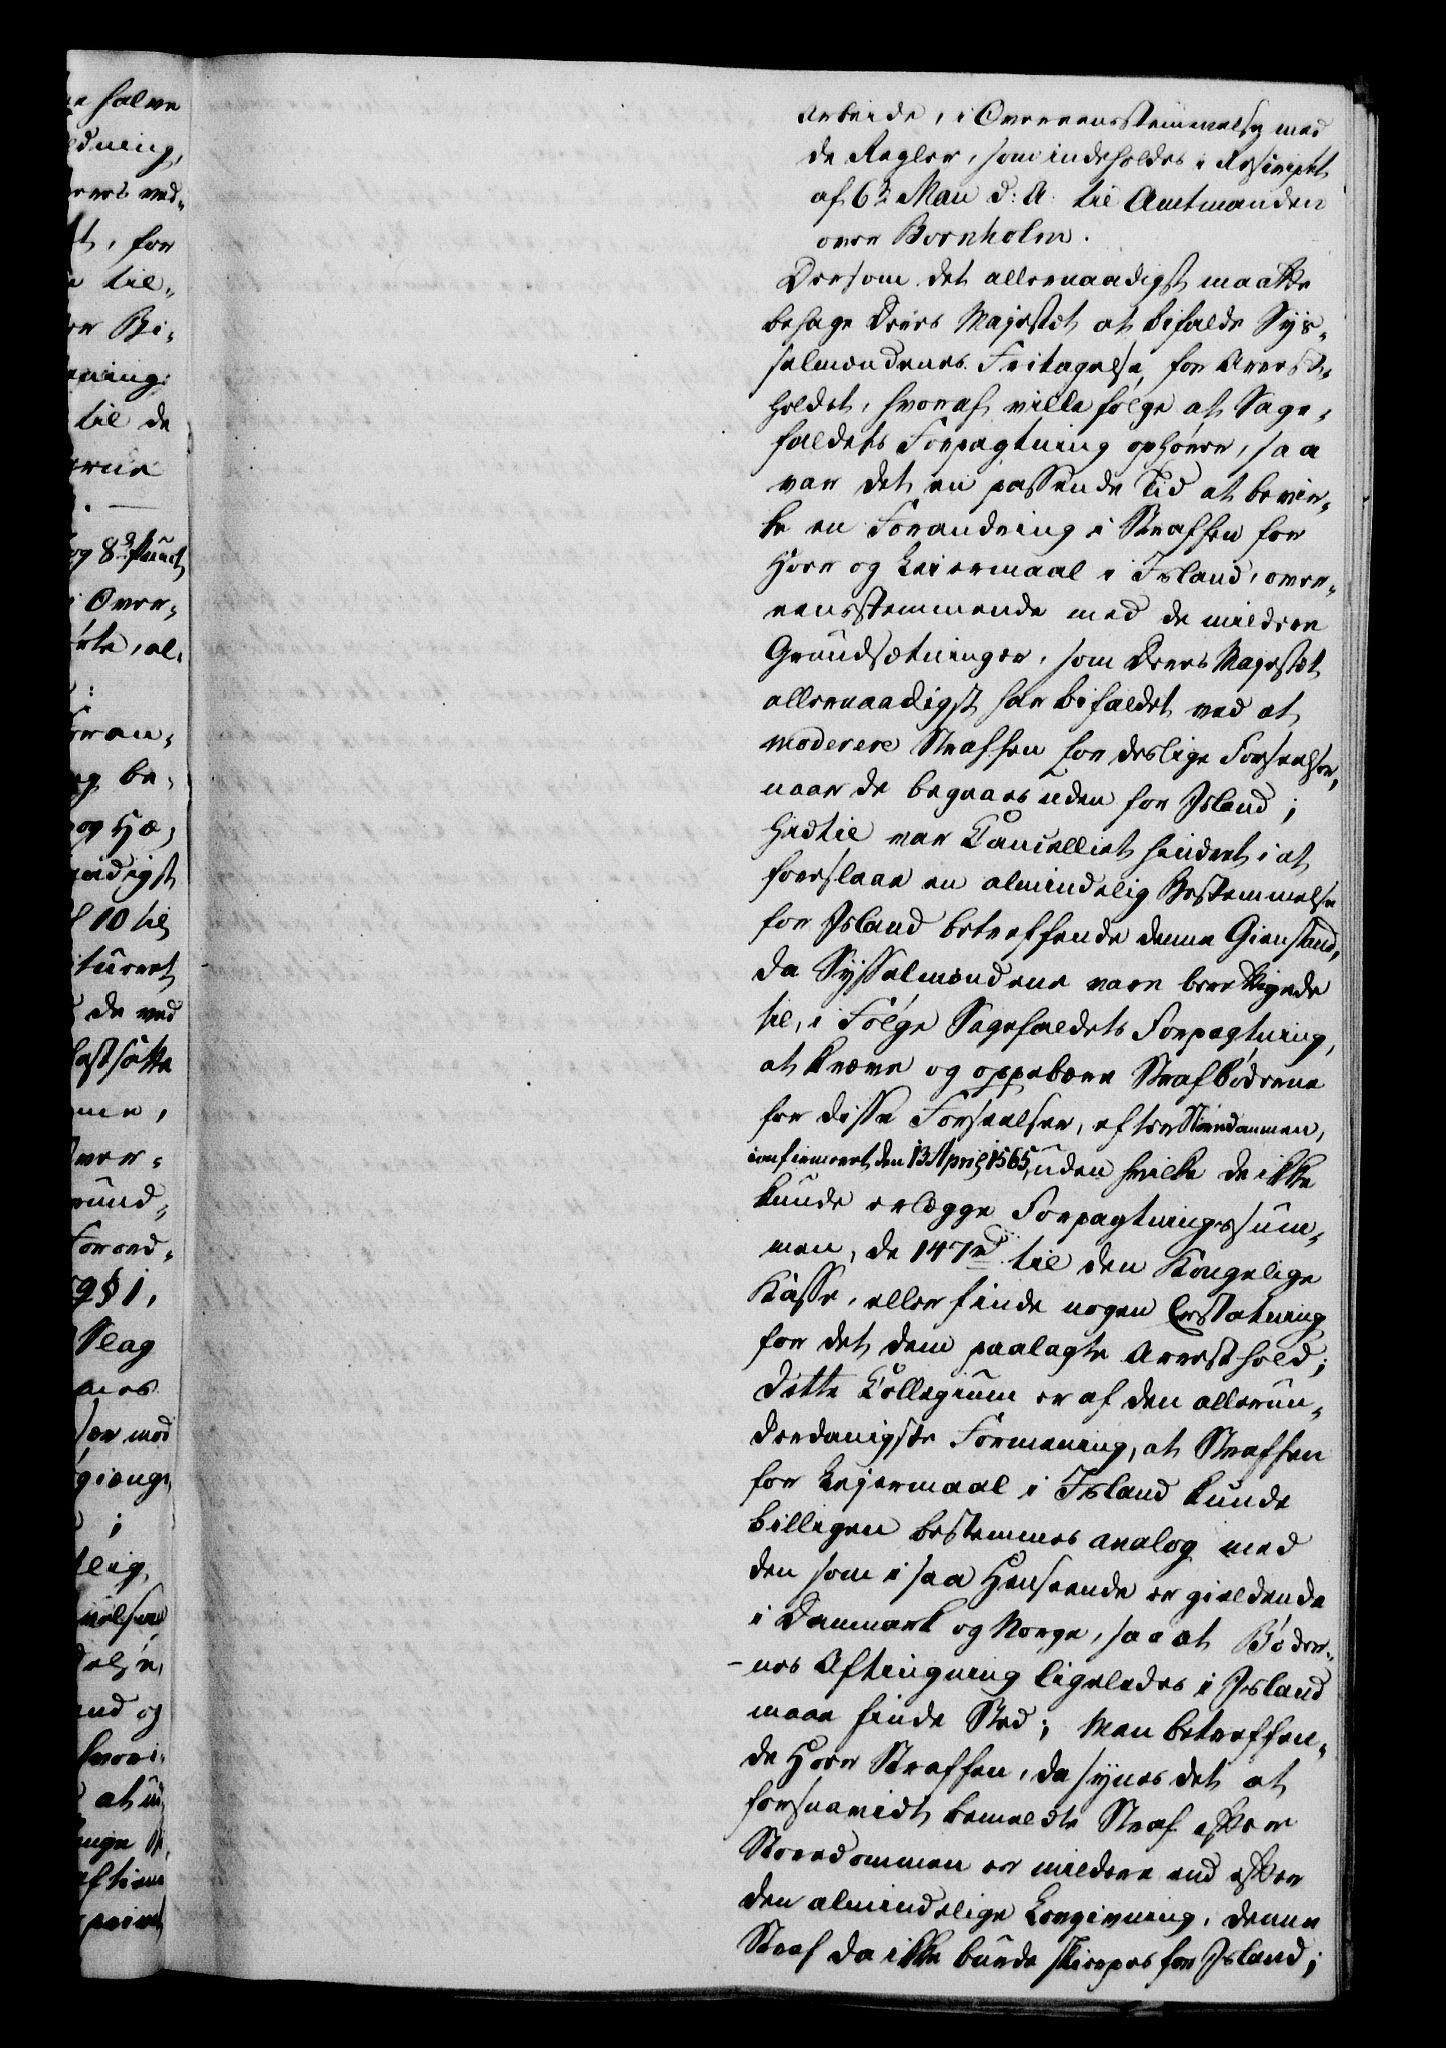 Arbeide, i Overeensstemmelse med
de Regler, som indeholdes i Rescriptet
af 6te Mai d: A: til Amtmanden
over Bornholm.
Dersom det allernaadigst maatte
behage Deres Majestet at bifalde Sys-
selmendenes Fritagelse for Arrest-
holdet, hvoraf ville følge at Sage-
faldets Forpagtning ophører, saa
var det en passende Tid at bevir-
ke en Forandring i Straffen for
Hoer og Leiermaal i Island, over-
eensstemmende med de mildere
Grundsætninger, som Deres Majestet
allernaadigst har bifaldet ved at
moderere Straffen for deslige Forseelser,
naar de begaaes uden for Island;
hidtil var Cancelliet hindret i at
foreslaae en almindelig Bestemmelse
for Island betreffende denne Gienstand,
da Sysselmendene vare berettigede
til, i Følge Sagefaldets Forpagtning,
at kræve og oppebære Strafbøderne
for disse Forseelser, efter Storedommen,
confirmeret den 13 April 1565, uden hvilke de ikke
kunde erlægge Forpagtningssum-
men, de 147 rd til den Kongelige
Kasse, eller finde nogen Erstatning
for det dem paalagte Arresthold;
dette Collegium er af den allerun-
derdanigste Formening, at Straffen
for Lejermaal i Island kunde
billigen bestemmes analog med
den som i saa Henseende er gieldende
i Danmark og Norge, saa at Bøder-
nes Aftingning ligeledes i Island
maae finde Sted; Men betreffen-
de Hoer Straffen, da synes det at
forsaavidt bemeldte Straf efter
Storedommen er mildere end efter
den almindelige Lovgivning, denne
Straf da ikke burde skierpes for Island;